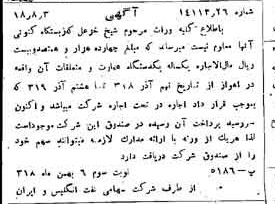 شماره ۱۴۱۱۳،۲۶ آگهی ۱۸،۸،۳
باطلاع کلیه وراث مرحوم شیخ خزعل که فرستگاه کنونی
آنها معلوم نیست میرساند که مبلغ چهارده هزار و هفتصدوبیست
ریال مال‌الاجاره یکساله یکدستگاه عمارت و متعلقات آن واقعه
در اهواز از تاریخ نهم آذر ۳۱۸ تا هشتم آذر ۳۱۹ که
بموجب قرار داد اجاره در تحت اجاره شرکت میباشد و اکنون
سررسید پرداخت آن رسیده در صندوق این شرکت موجوداست
لذا هریك از ورثه با ارائه مدارك لازمه میتوانند سهم خود
را از صندوق شرکت دریافت دارد
پ-۵۱۸۶ نوبت سوم ۶ بهمن ماه ۳۱۸
از طرف شرکت سهامی نفت انگلیس و ایران